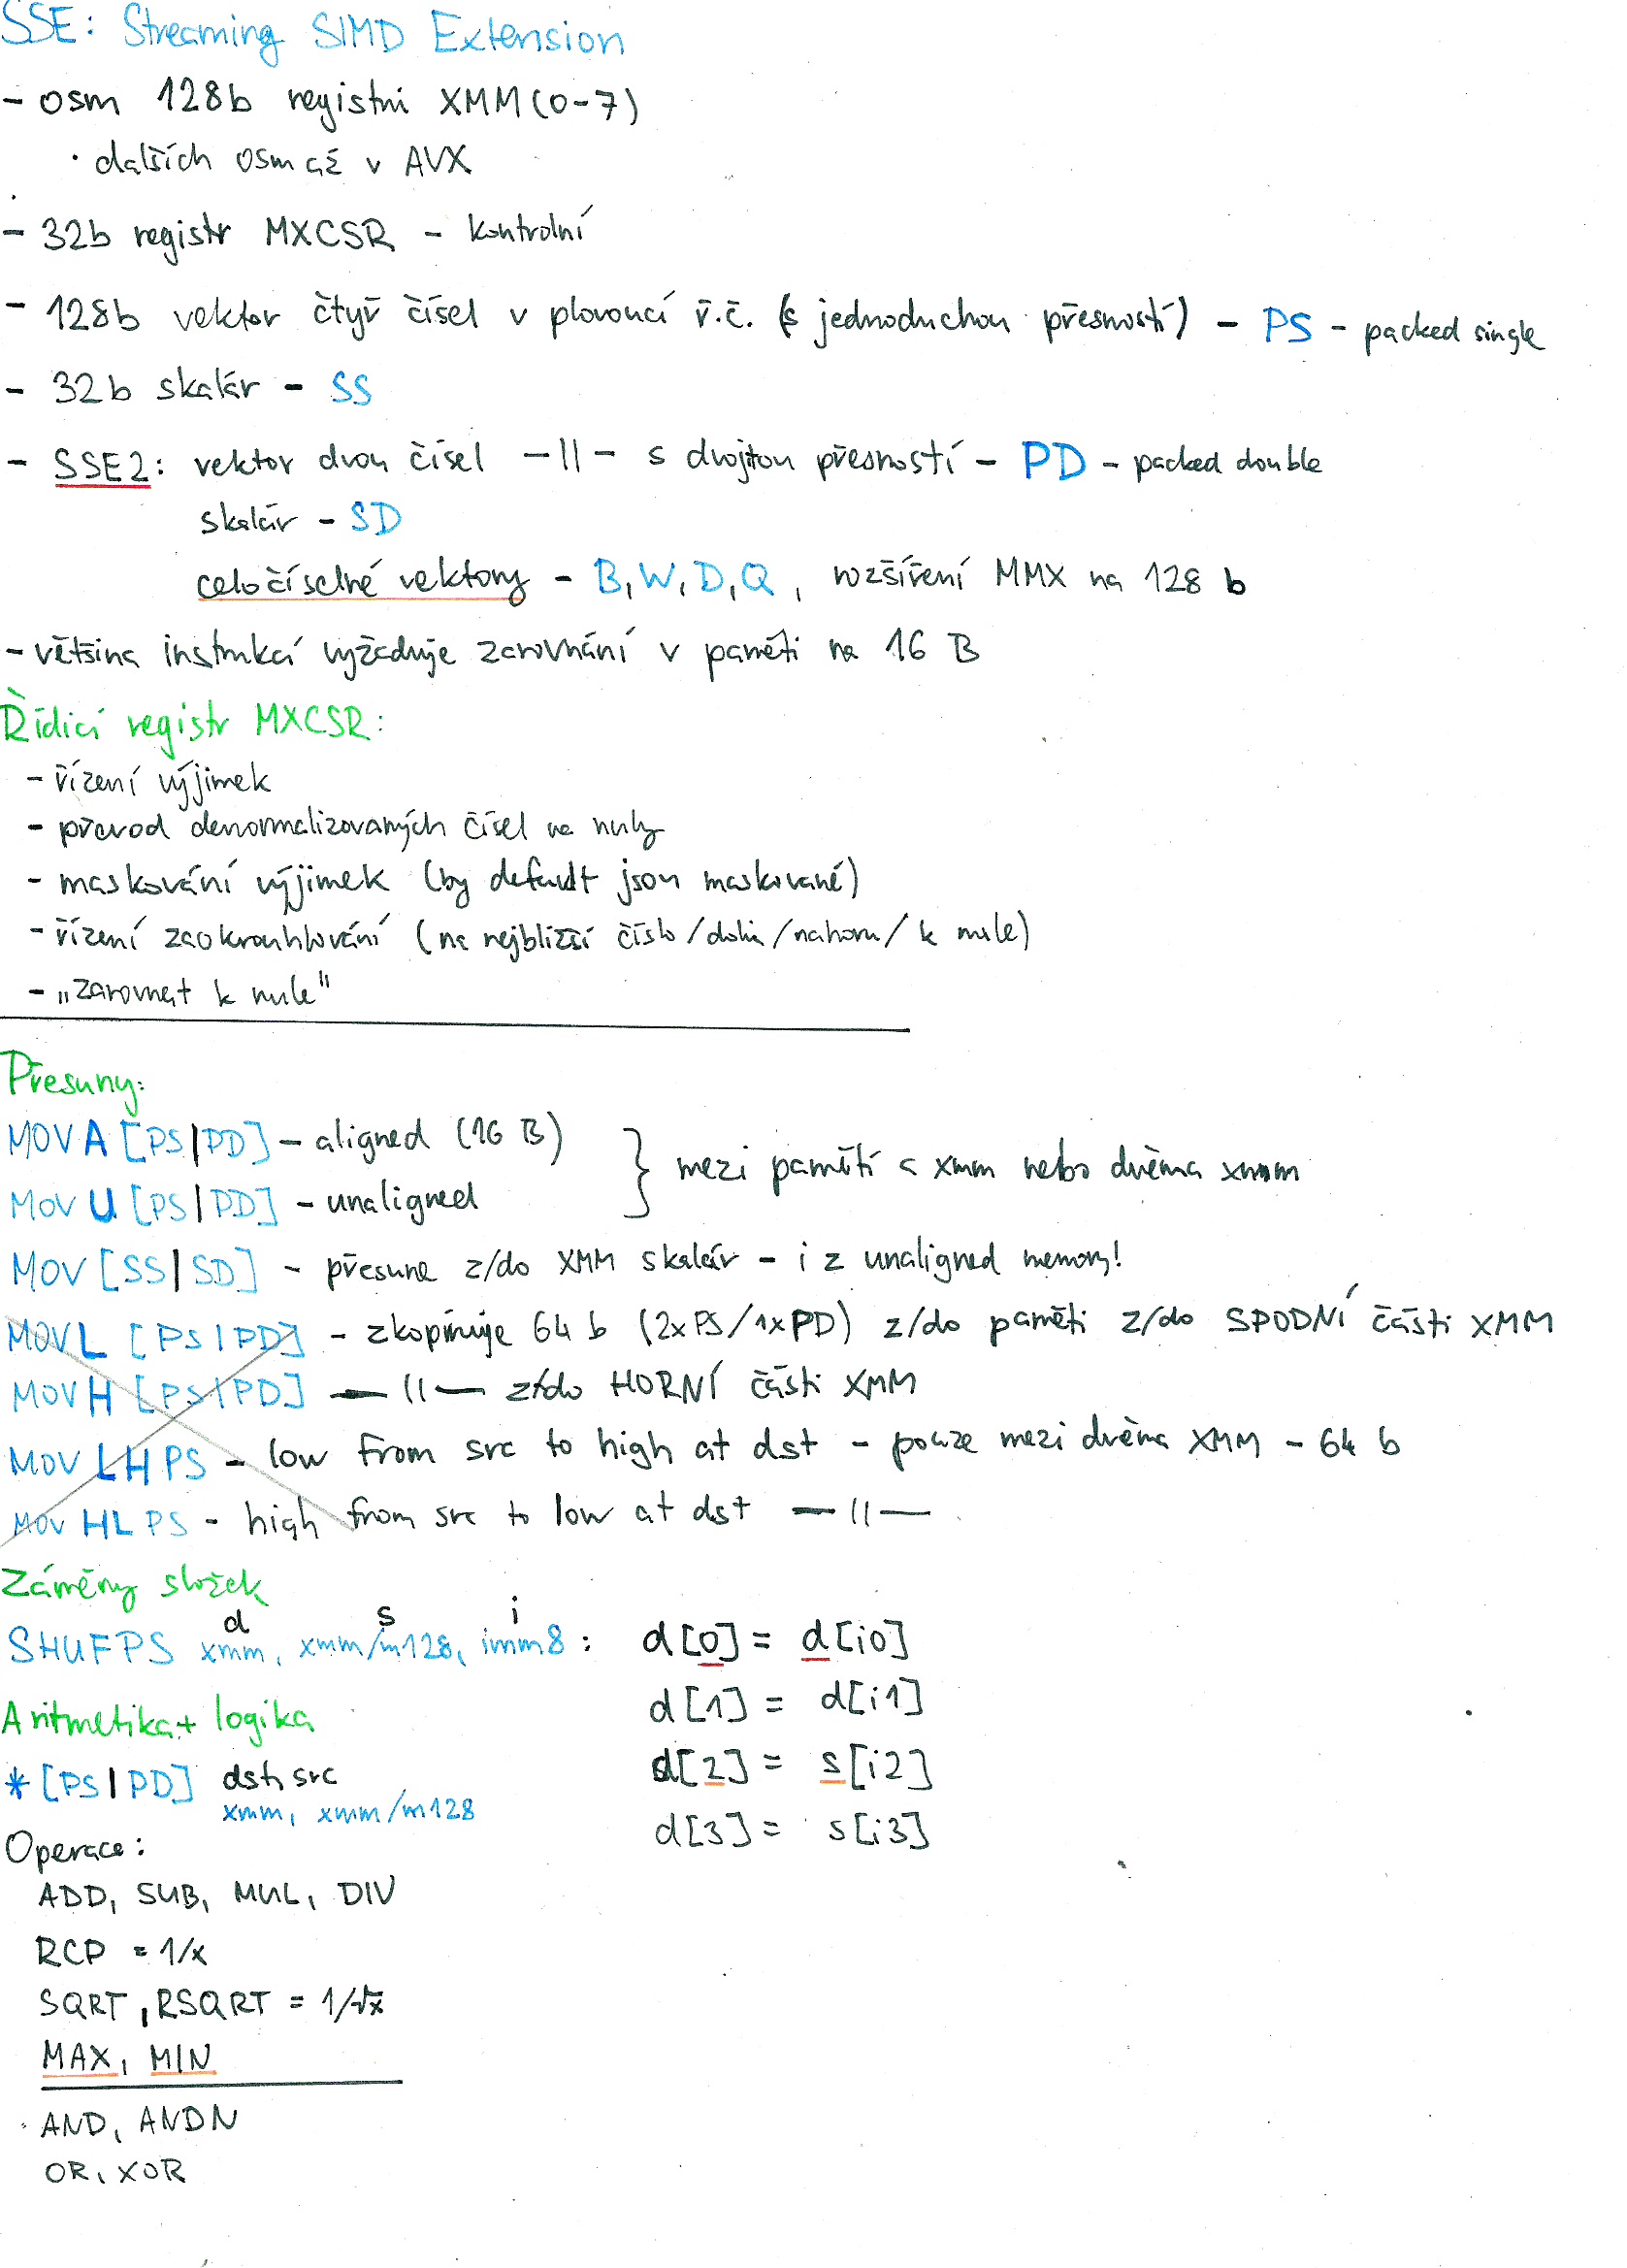 SSE: Streaming SIMD Extension
- osm 128b registrů XMM(0-7)
· dalších osm až v AVX
- 32b registr MXCSR - kontrolní
- 128b vektor čtyř čísel v plovoucí ř.č. (s jednoduchou přesností) - PS - packed single
- 32b skalár - SS
- SSE2: vektor dvou čísel -||- s dvojitou přesností - PD - packed double
skalár - SD
celočíselné vektory - B, W, D, Q, rozšíření MMX na 128 b
- většina instrukcí vyžaduje zarovnání v paměti na 16 B
Řídicí registr MXCSR:
- řízení výjimek
- převod denormalizovaných čísel na nuly
- maskování výjimek (by default jsou maskované)
- řízení zaokrouhlování (na nejbližší číslo/dolů/nahoru/k nule)
- „zarovnat k nule"
Přesuny:
MOVA [PS|PD] - aligned (16 B)
MOVU [PS|PD] - unaligned } mezi pamětí a xmm nebo dvěma xmm
MOV [SS|SD] - přesune z/do XMM skalár - i z unaligned memory!
MOVL [PS|PD] - zkopíruje 64 b (2xPS/1xPD) z/do paměti z/do SPODNÍ části XMM
MOVH [PS|PD] -||- z/do HORNÍ části XMM
MOVLHPS - low from src to high at dst - pouze mezi dvěma XMM - 64 b
MOVHLPS - high from src to low at dst -||-
Záměny složek
d s i
SHUFPS xmm, xmm/m128, imm8: d[0] = d[i0]
d[1] = d[i1]
d[2] = s[i2]
d[3] = s[i3]
Aritmetika + logika
*[PS|PD] dst, src
xmm, xmm/m128
Operace:
ADD, SUB, MUL, DIV
RCP = 1/x
SQRT, RSQRT = 1/√x
MAX, MIN
AND, ANDN
OR, XOR